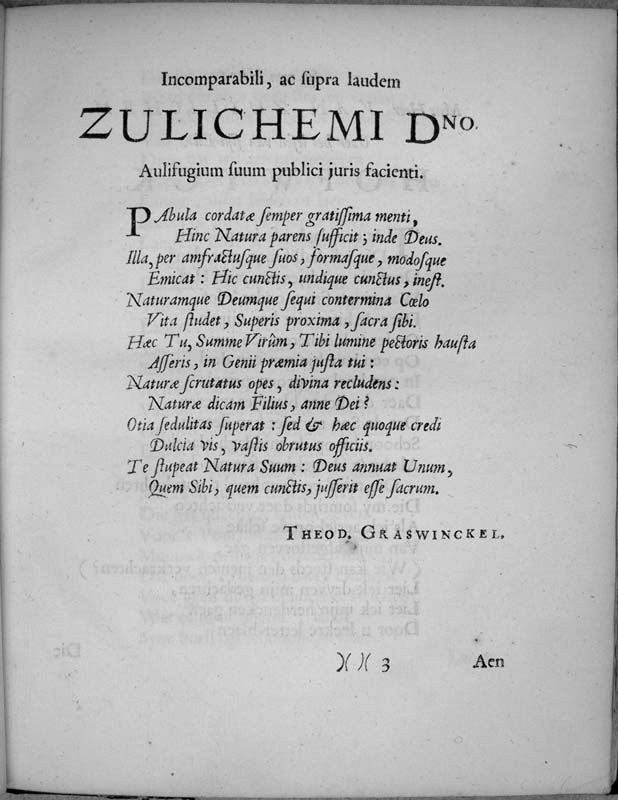 Incomparabili, ac ſupra laudem
ZULICHEMI Dᴺᴼ.
Aulifugium ſuum publici juris facienti.
PAbula cordatæ ſemper gratiſſima menti,
Hinc Natura parens ſufficit; inde Deus.
Illa, per amfractuſque ſuos, formaſque, modoſque
Emicat: Hic cunctis, undique cunctus, ineſt.
Naturamque Deumque ſequi contermina Cœlo
Vita ſtudet, Superis proxima, ſacra ſibi.
Hæc Tu, Summe Virûm, Tibi lumine pectoris hauſta
Aſſeris, in Genii præmia juſta tui:
Naturæ ſcrutatus opes, divina recludens:
Naturæ dicam Filius, anne Dei?
Otia ſedulitas ſuperat: ſed & hæc quoque credi
Dulcia vis, vaſtis obrutus officiis.
Te ſtupeat Natura Suum: Deus annuat Unum,
Quem Sibi, quem cunctis, juſſerit eſſe ſacrum.
THEOD. GRASWINCKEL.
)( )( 3 Aen